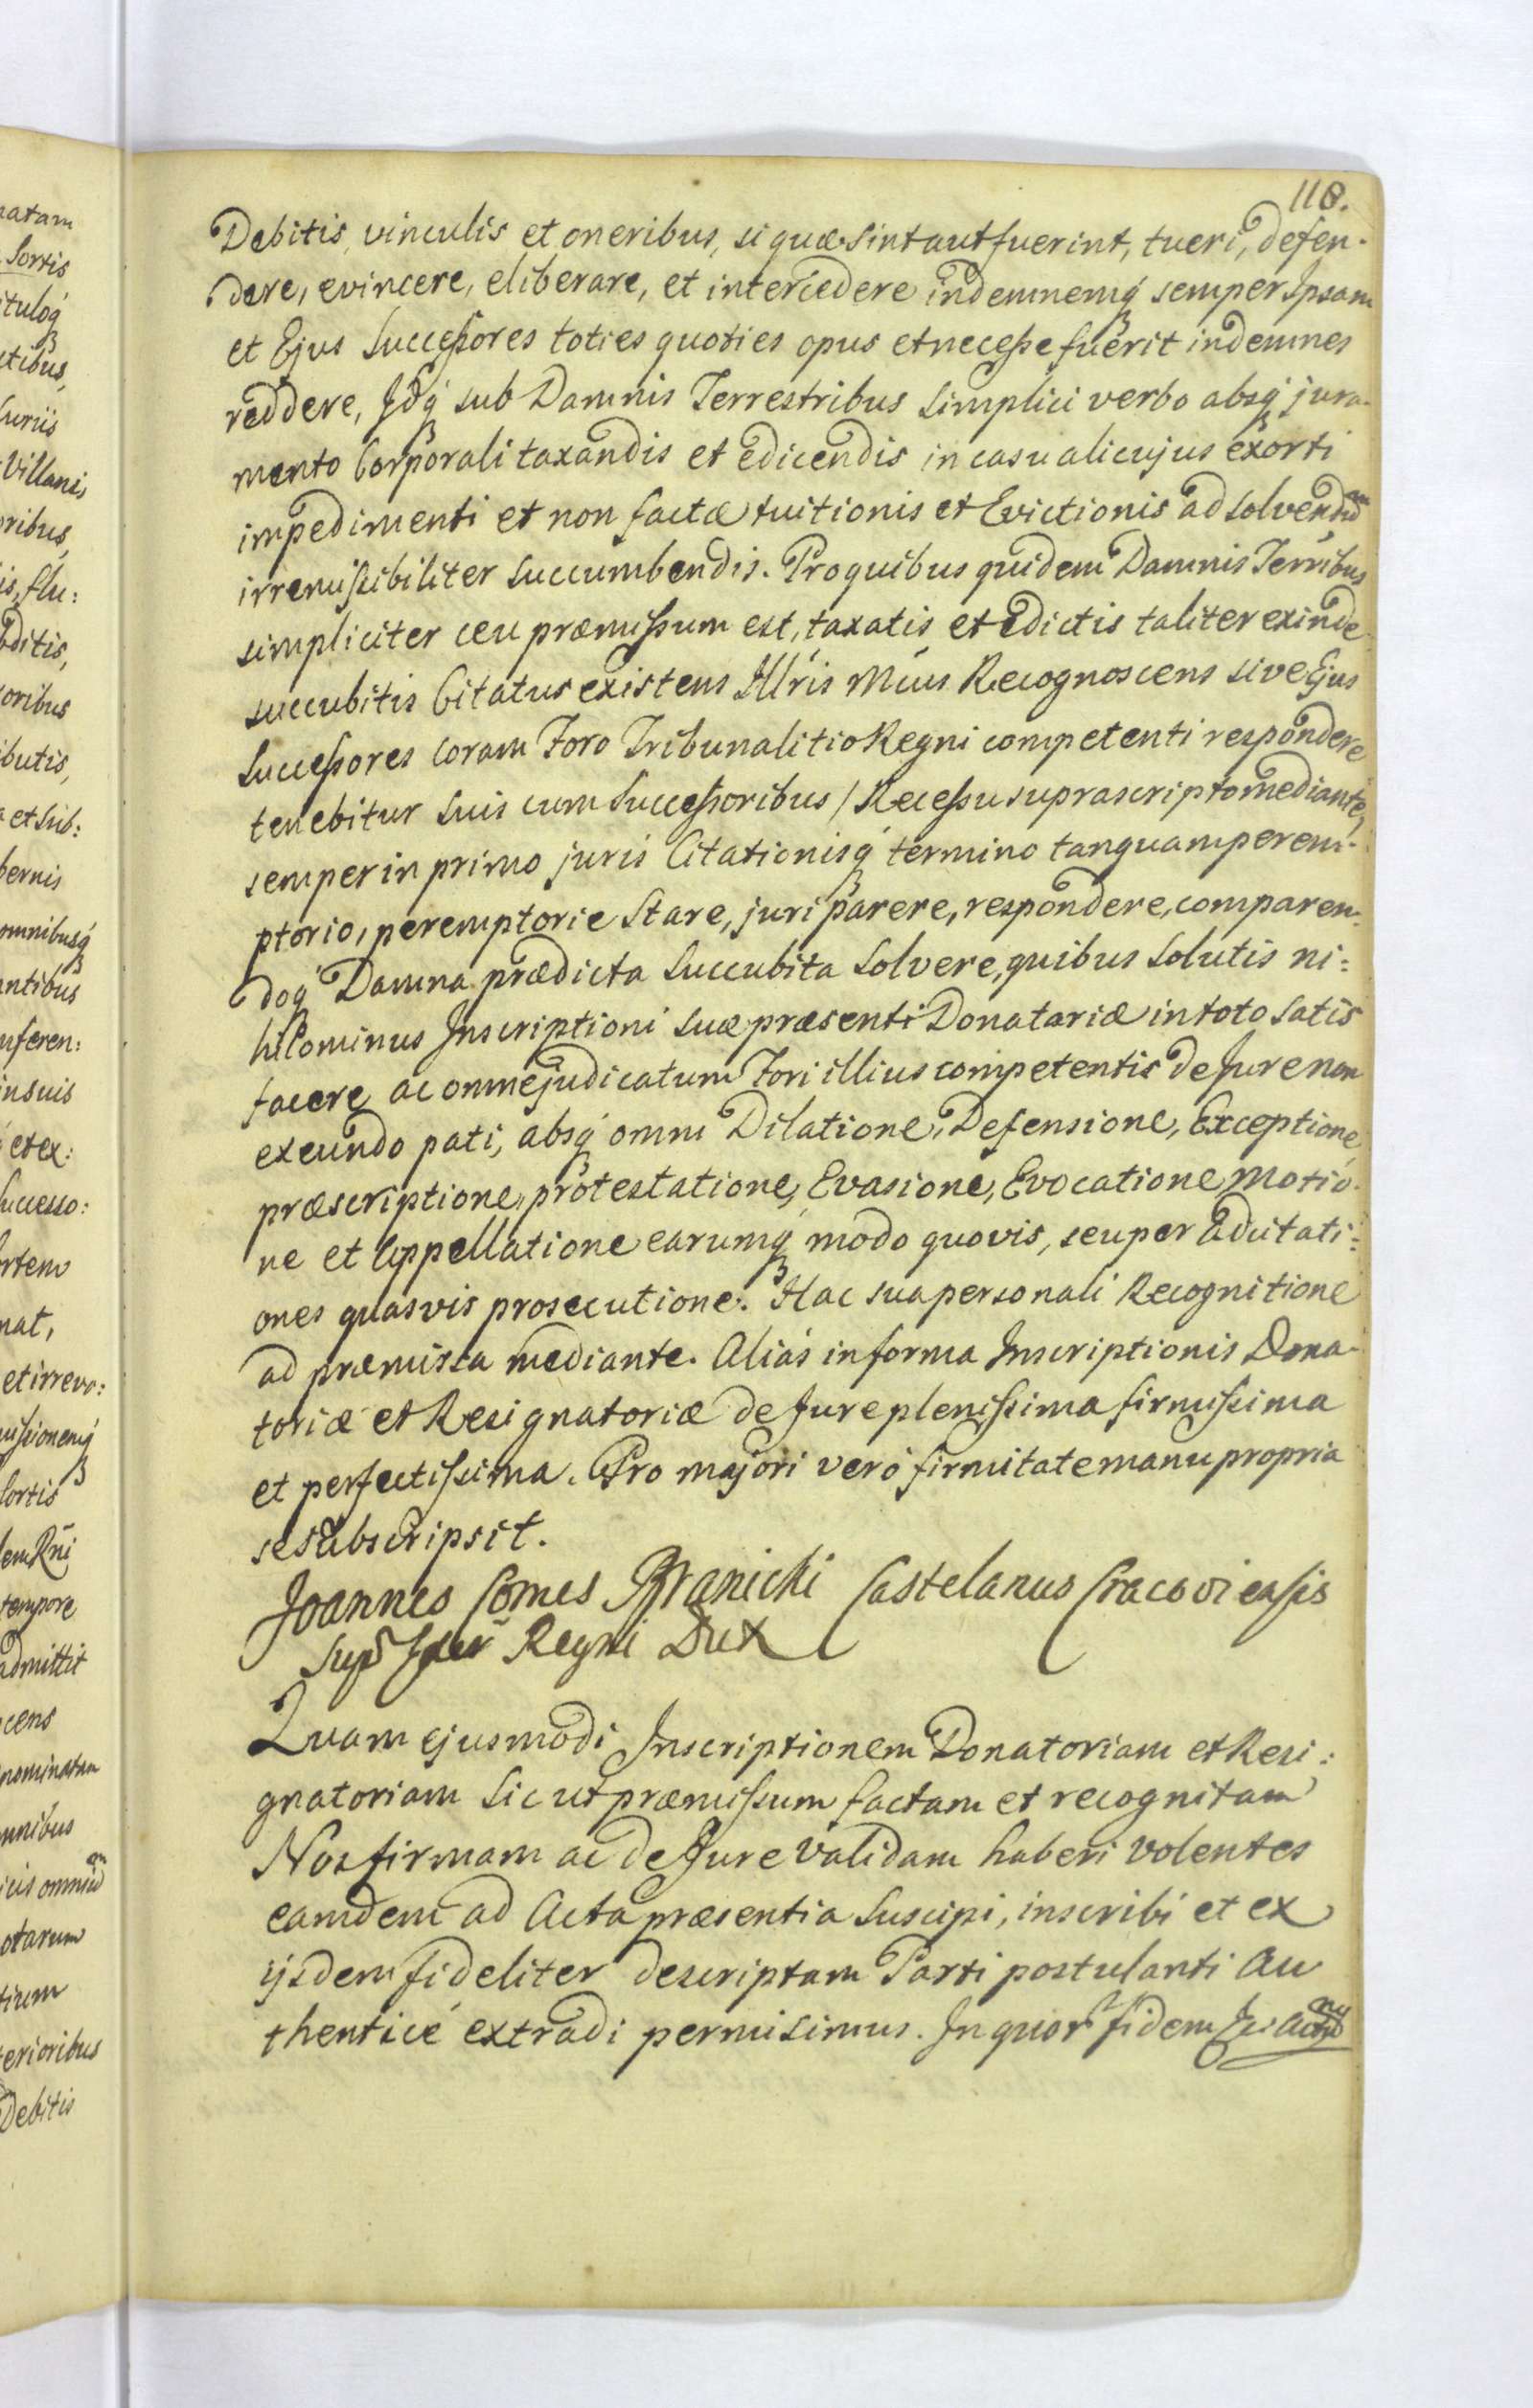 118.
Debitis, vinculis et oneribus, si quæ sint aut fuerint, tueri, defen-
dere, evincere, eliberare, et intercedere indemnemq́ semper Ipsam
et Ejus Successores toties quoties opus et necesse fuerit indemnes
reddere, Idq́ sub Damnis Terrestribus simplici verbo absq́ jura-
mento Corporali taxandis et edicendis in casu alicujus exorti
impedimenti et non factæ tuitionis et Evictionis ad solvendũ
irremissibiliter succumbendis. Pro quibus quidem Damnis Terribus
simpliciter ceu præmissum est, taxatis et edictis taliter exinde
succubitis Citatus existens Illris Mcus Recognoscens sive Ejus
Successores coram Foro Tribunalitio Regni competenti respondere
tenebitur suis cum Successoribus / Recessu suprascripto mediante,
semper in primo juris Citationisq́ termino tanquam perem-
ptorio, peremptorie stare, juri parere, respondere, comparen-
doq́ Damna prædicta succubita solvere, quibus solutis ni=
hilominus Inscriptioni suæ præsenti Donatariæ in toto satis
facere ac omne judicatum Fori illius competentis de Jure non
exeundo pati, absq́ omni Dilatione, Defensione, Exceptione,
præscriptione, protestatione, Evasione, Evocatione, Motio-
ne et Appellatione earumq́ modo quovis, seu per Adcitati=
ones quasvis prosecutione. Hac sua personali Recognitione
ad præmissa mediante. Aliás in forma Inscriptionis Dona-
toriæ et Resignatoriæ de Jure plenissima firmissima
et perfectissima. Pro majori veró firmitate manu propria
se subscripsit.
Joannes Comes Branicki Castelanus Cracoviensis
Regni Dux
Quam ejusmodi Inscriptionem Donatoriam et Resi:
gnatoriam sic ut præmissum factam et recognitam
Nos firmam ac de Jure validam haberi volentes
eamdem ad Acta præsentia suscipi, inscribi et ex
ijsdem fideliter descriptam Parti postulanti Au
thenticé extradi permisimus. In quor fidem
natam
Sortis
ituloq́
ctibus,
Villanis
oribus,
is, flu:
bditis,
oribus
ibutis,
et sub:
bernis
omnibusq́
antibus
nferen:
in suis
et ex:
Successo:
ortem
nat,
et irrevo:
issionemq́
Sortis
tempore
admittit
cens
nominatam
mnibus
otarum
tium
terioribus
Debitis